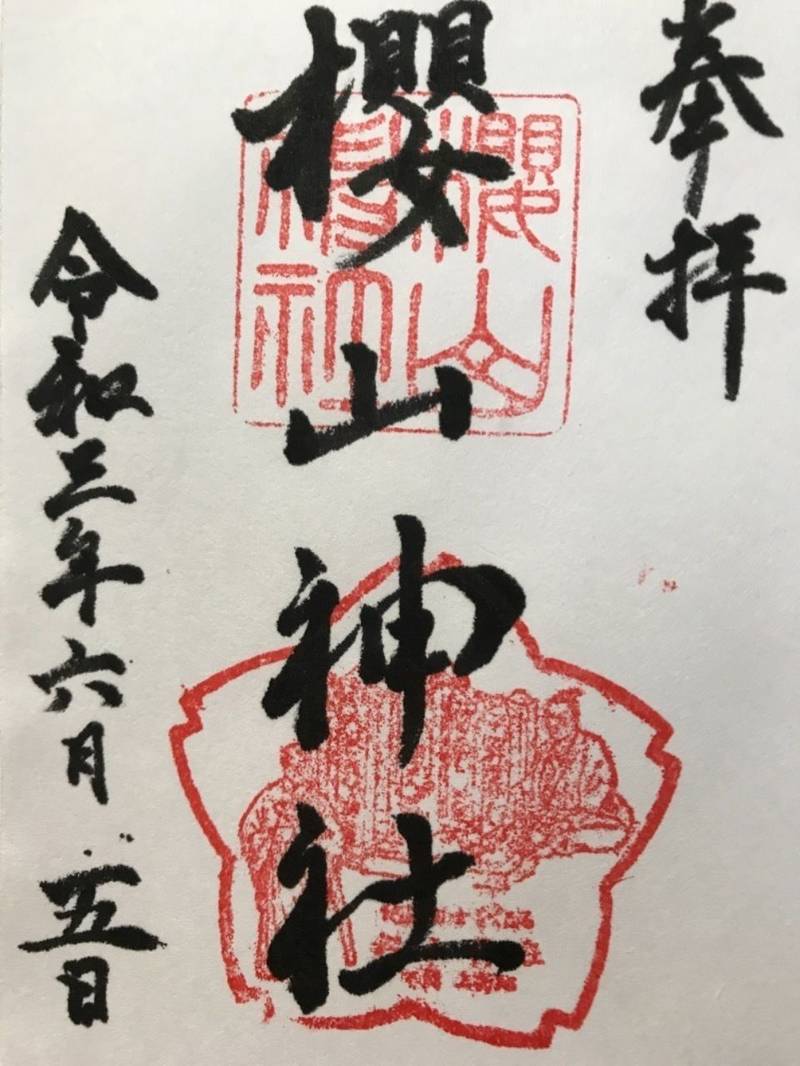 奉拝
櫻山神社
令和三年六月五日
櫻山神社